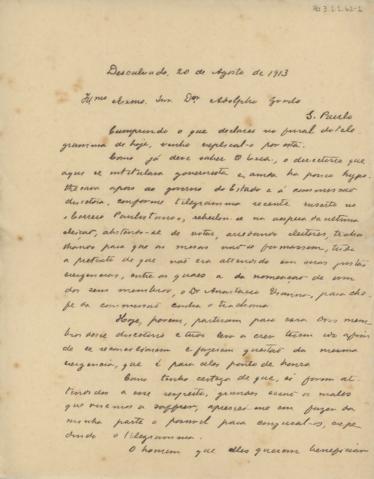 Descalvado, 20 de Agosto de 1913
Illmo Exmo. Snr. Dor Adolpho Gordo
S. Paulo
Cumprindo o que declarei no final do tele
gramma de hoje, venho explical-o por esta.
Como já deve saber V. Excia, o directorio que
aqui se intitulava governista e ainda ha pouco hypo
thecava apoio ao governo do Estado e á commissão
directora, conforme telegramma recente inserto no
Correio Paulistano, rebellou-se na vespera da ultima
eleição, abstendo-se de votar,
thando para que as mesas não se formassem, tudo
a pretexto de que não era attendido em suas justas
exigencias, entre as quaes a da nomeação de um
dos seus membros, o Dr Anastacio Vianna, para che
fe da commissão contra o trachoma.
Hoje, porem, partiram para essa dois mem
bros desse directorio e tudo leva a crer terem ido afim
de se reconciliarem e fazerem questão da mesma
exigencia, que é para elles ponto de honra
Como tenho certeza de que, si forem at
tendidos a esse respeito, grandes serão os males
que viremos a soffrer, apressei-me em fazer da
minha parte o possivel para conjural-os, expe
dindo o telegramma.
O homem que elles querem beneficiar